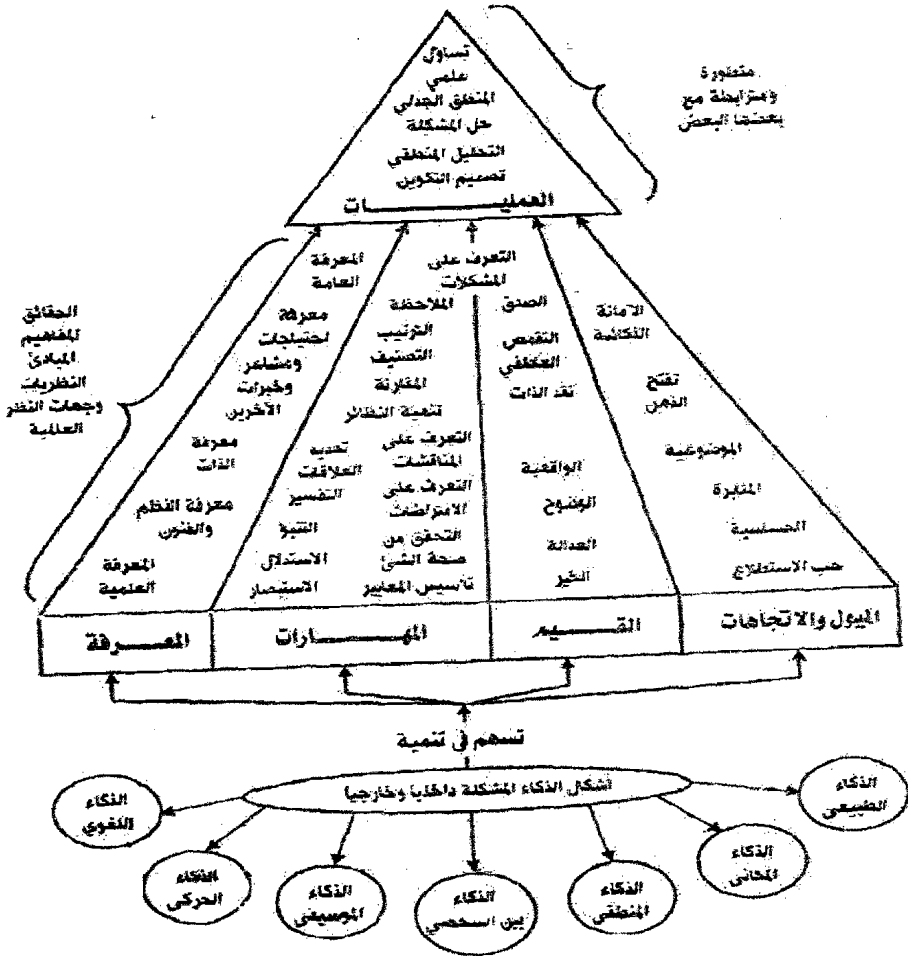 تساؤل
علمي
المنطق الجدلي
حل المشكلة
التحليل المنطقي
تصميم التكوين
العمليــــــــات
متطورة
ومترابطة مع
بعضها البعض
الحقائق
المفاهيم
المبادئ
النظريات
وجهات النظر
العلمية
المعرفة
العامة
معرفة
احتياجات
ومشاعر
وخبرات
الآخرين
معرفة
الذات
معرفة النظم
والفنون
المعرفة
العلمية
التعرف على
المشكلات
الملاحظة
الترتيب
التصنيف
المقارنة
تنمية النظائر
التعرف على
المناقشات
التعرف على
الافتراضات
التحقق من
صحة الشئ
تأسيس المعايير
تحديد
العلاقات
التفسير
التنبؤ
الاستدلال
الاستبصار
الصدق
التقمص
العطفي
نقد الذات
الواقعية
الوضوح
العدالة
الخير
الأمانة
تفتح
الذهن
الموضوعية
المثابرة
الحساسية
حب الاستطلاع
المعــــرفة
المهــــــــارات
القــــــيم
الميول والاتجاهات
تسهم في تنمية
أشكال الذكاء المشكلة داخليا وخارجيا
الذكاء
اللغوي
الذكاء
الحركى
الذكاء
الموسيقى
الذكاء
بين الشخصي
الذكاء
المنطقى
الذكاء
المكانى
الذكاء
الطبيعى